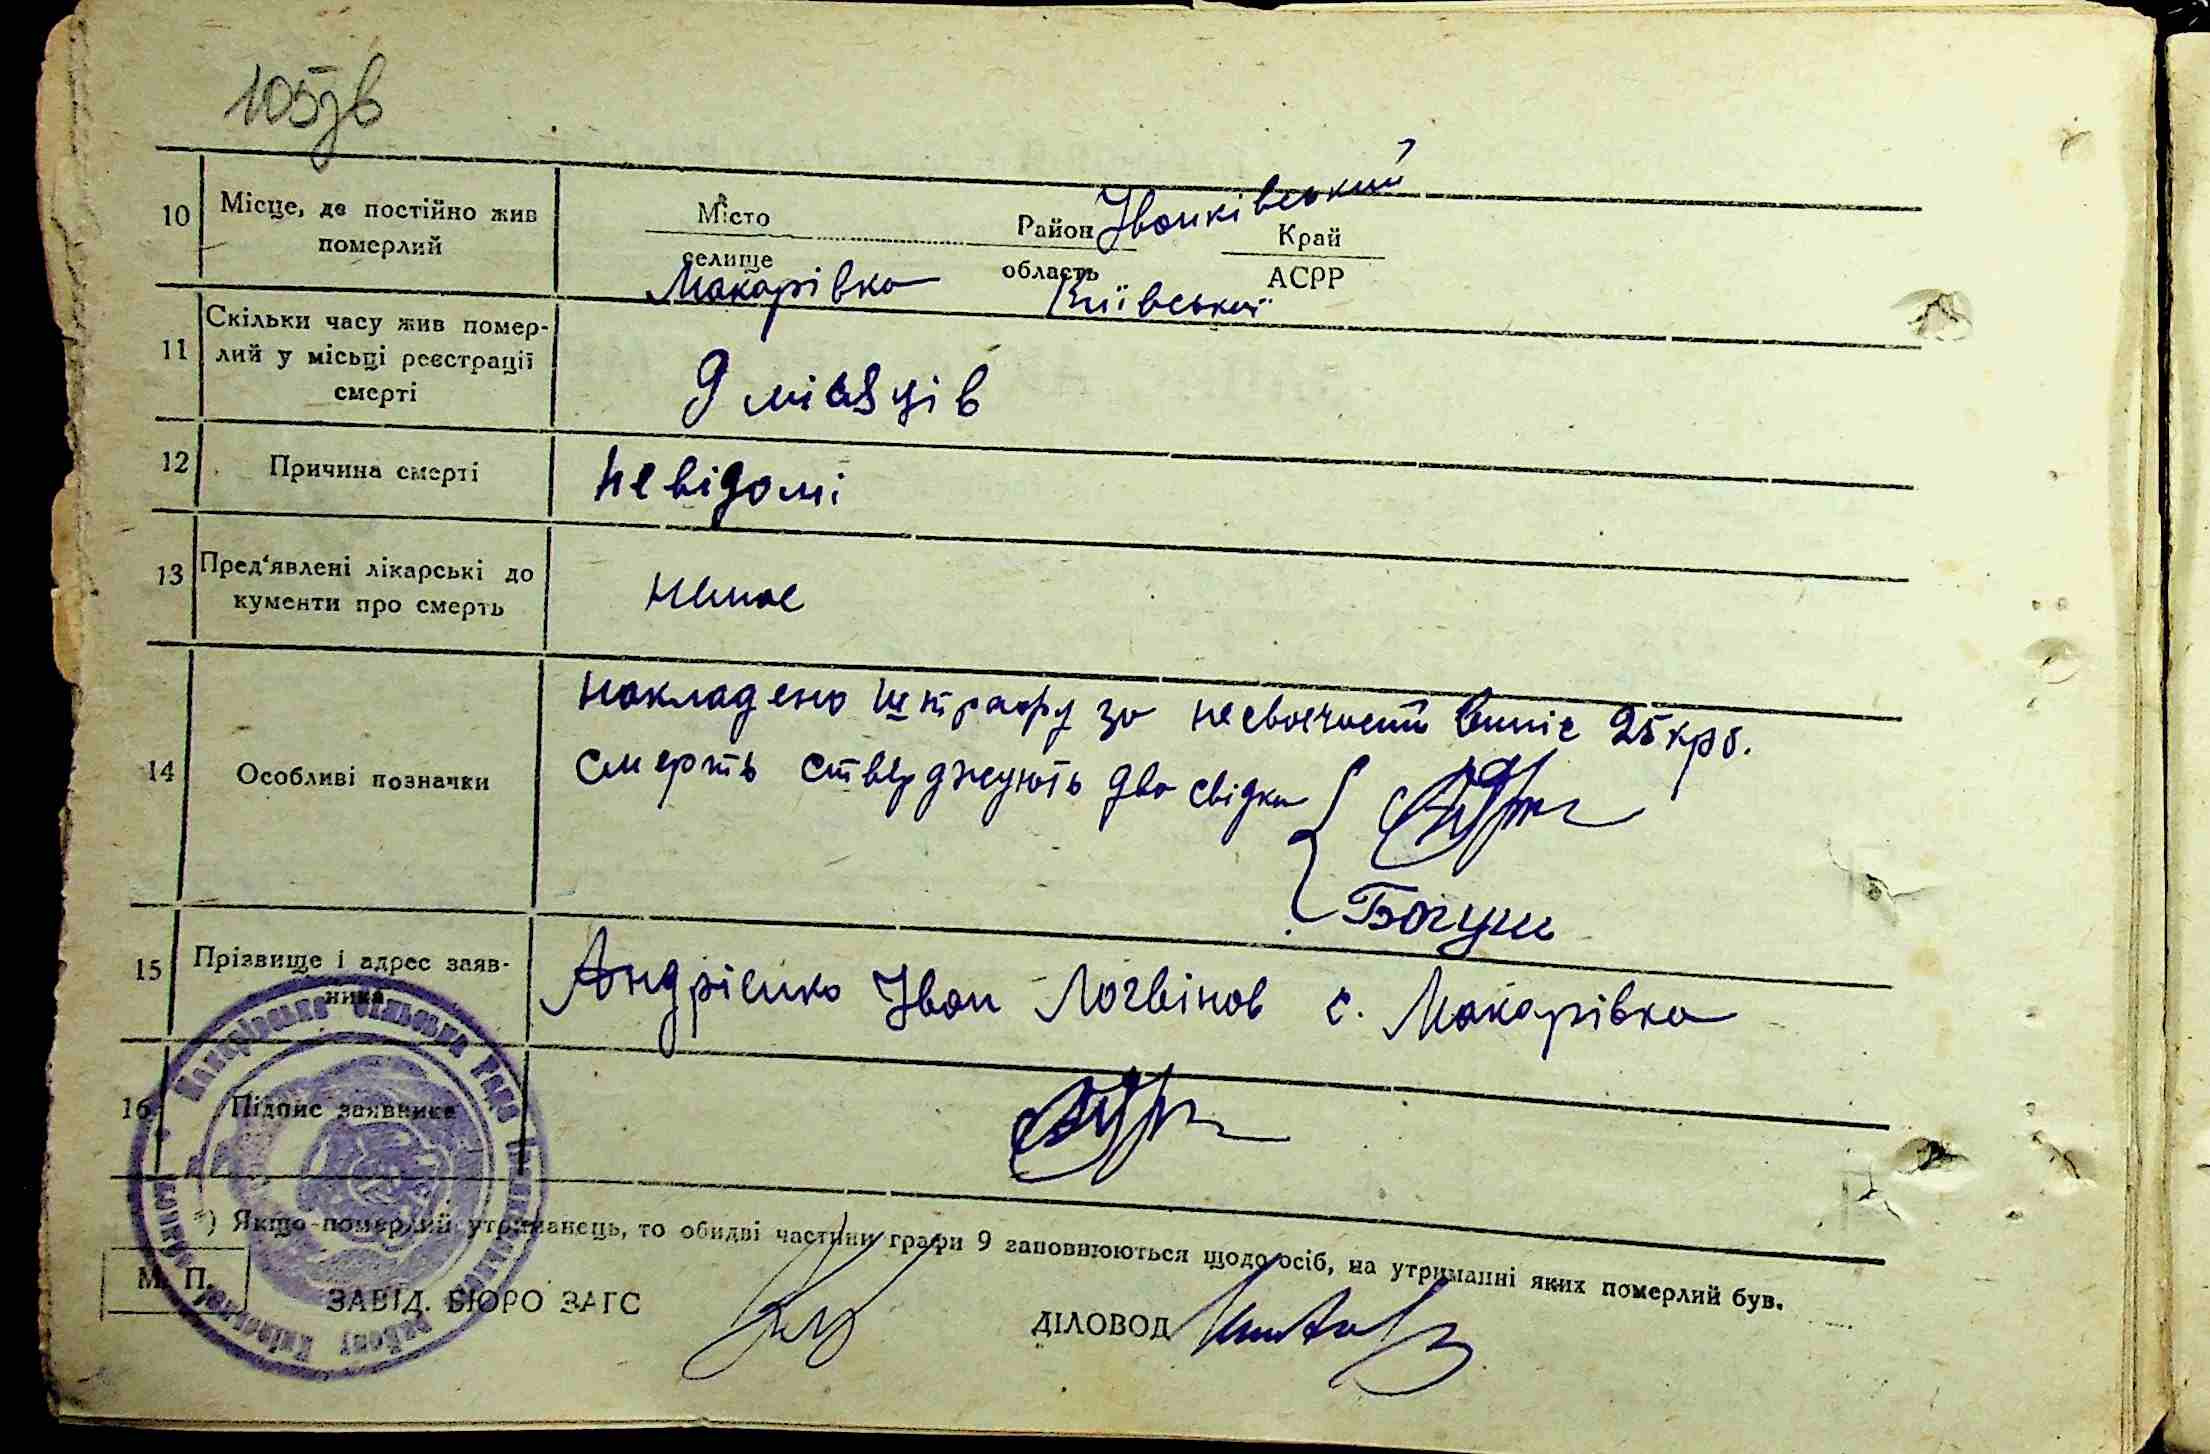 105зв
10 Місце, де постійно жив
померлий
Місто
селище
Макарівка
Район Іванківський
область Київської
Край
АСРР
11 Скільки часу жив помер-
лий у місьці реєстрації
смерті
9 місяців
12 Причина смерті
Невідомі
13 Пред‘явлені лікарські до
кументи про смерть
немає
14 Особливі позначки
накладено штрафу за несвоєчасний випіс 25 крб.
Смерть стверджують два свідки
Богуш
15 Прізвище і адрес заяв-
ника
Андрієнко Іван Логвінов с. Макарівка
16 Підпис заявника
*) Якщо померлий утриманець, то обидві частини графи 9 заповнюються щодо осіб, на утриманні яких померлий був.
М. П.
ЗАВІД. БЮРО ЗАГС
ДІЛОВОД
Макарівська Сільська Рада
району Київської